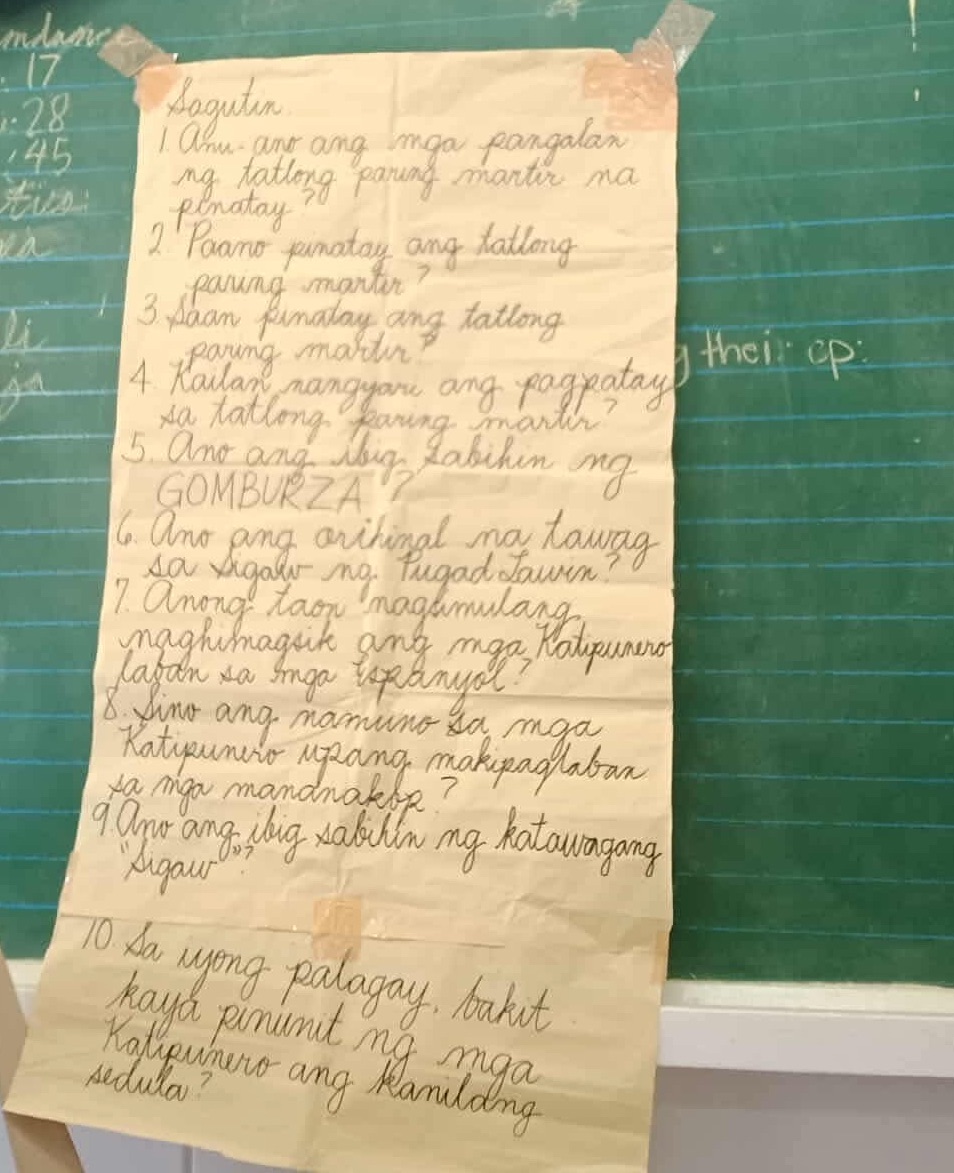 : 17
: 28
: 45
li
ja
Sagutin.
1. Anu-ano ang mga pangalan
ng tatlong paring martir na
pinatay?
2. Paano pinatay ang tatlong
paring martir?
3. Saan pinatay ang tatlong
paring martir?
4. Kailan nangyari ang pagpatay
sa tatlong paring martir?
5. Ano ang ibig sabihin ng
GOMBURZA?
6. Ano ang orihinal na tawag
sa Sigaw ng Pugad Lawin?
7. Anong taon nagsimulang
naghimagsik ang mga Katipunero
laban sa mga Espanyol?
8. Sino ang namuno sa mga
Katipunero upang makipaglaban
sa mga mananakop?
9. Ano ang ibig sabihin ng katawagang
"Sigaw"?
10. Sa iyong palagay, bakit
kaya pinunit ng mga
Katipunero ang kanilang
sedula?
thei cp: